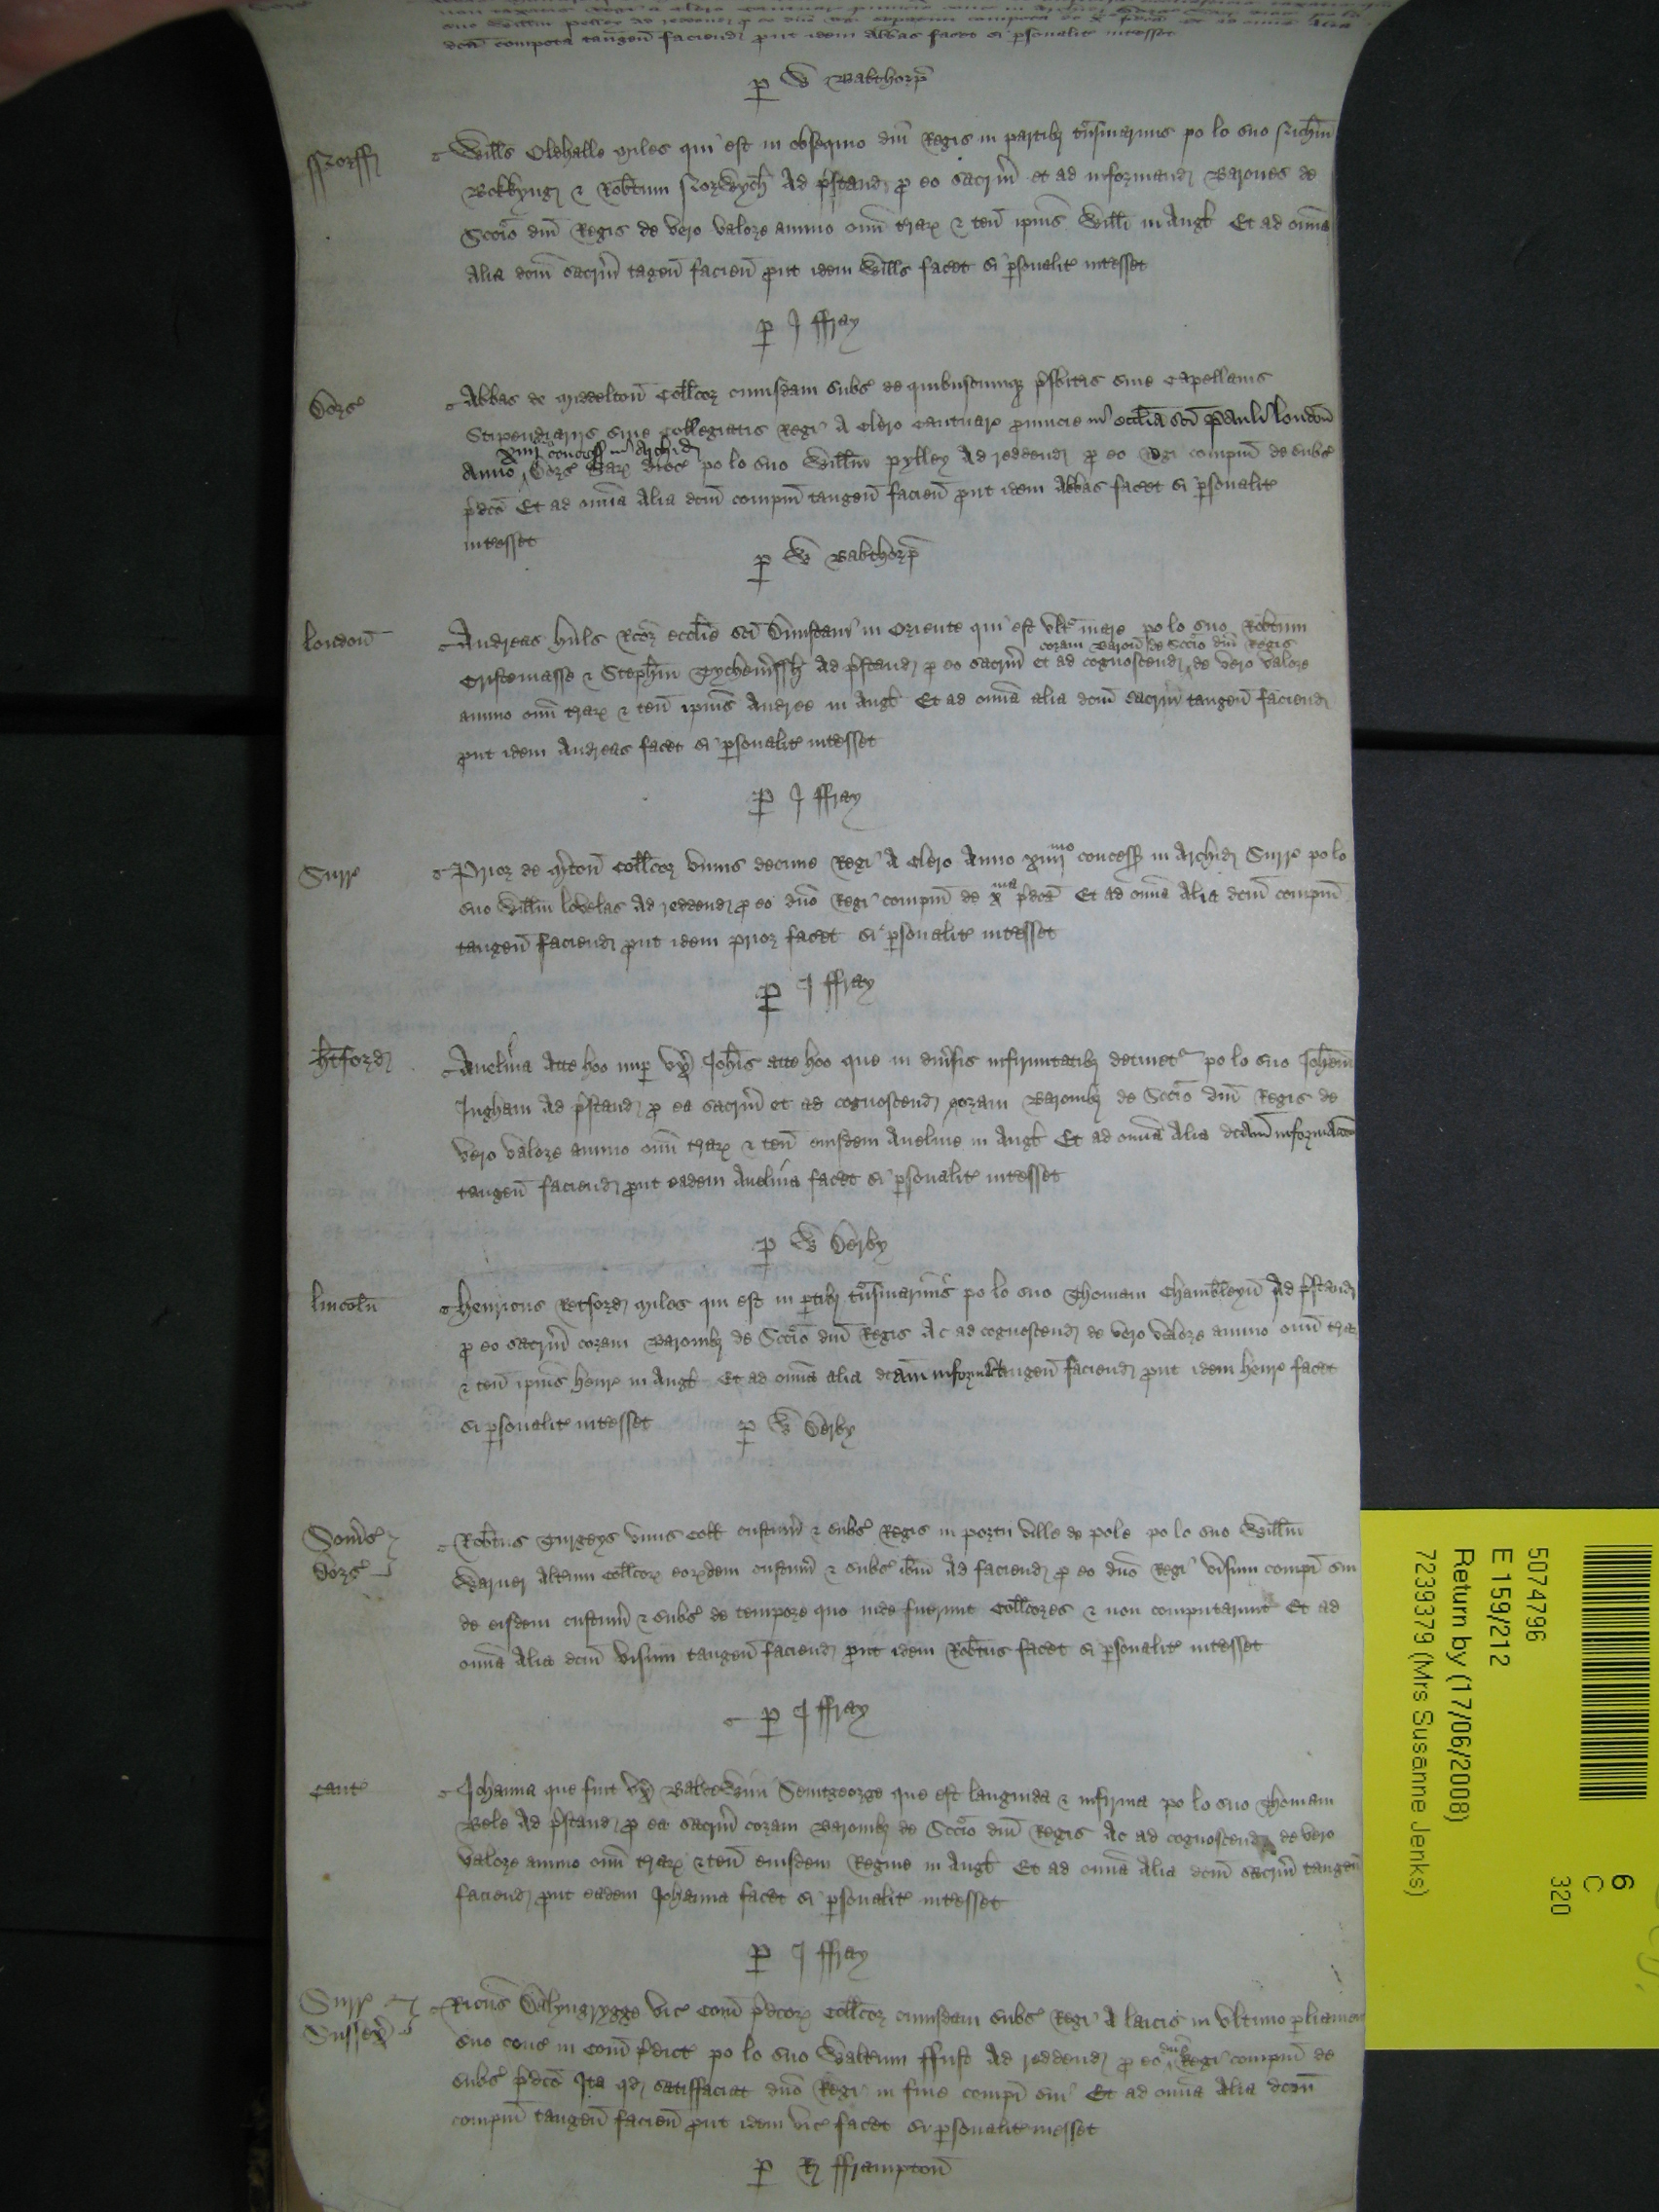 dcā compota tangen̄ faciend prout idem Abbas facet si psonalit intesset
p W Babthorp
Norff
Wills Oldhalle Miles qui est in obsequio dni Regis in partib tnsmarinis po lo suo Nichm
Bokkyng & Robtum Norwych Ad pstand p eo sacrm et ad informand Barones de
Sccio dni Regis de vero valore annuo omi trar & ten ipius Willi in Angl Et ad omia
Alia dcm sacrm tagen facien put idem Wills facet si psonalit intesset
p J ffray
Dors
Abbas de Middelton Collcor cuiusdam subs de quibuscumq psbitis sive Capellanis
Stipendiarijs sive Collegiatis Regi A Clero Cantuar provincie in ecclia sci Pauli london
xiiij concess in Archid
Anno Dors Sar dioc po lo suo Willm pylley Ad reddend p eo Regi compm de subs
pdco Et ad omia Alia dcm compm tangen facien put idem Abbas facet si psonalit
intesset
p W Babthorp
london
Andreas huls Rcor ecclie sci Dunstani in Oriente qui est ult mare po lo suo Robtum
coram Baron de Sccio dni Regis
Cristemasse & Stephm Ad pstand p eo sacrm et ad cognoscend de vero valore
annuo omi trar & ten ipius Andree in Angl Et ad omia alia dcm sacrm tangen faciend
put idem Andreas facet si psonalit intesset
p J ffray
Surr
Prior de Mton Collcor unius decime Regi A Clero Anno xiiij mo concess in Archid Surr po lo
suo Willm lovelas Ad reddend p eo dno Regi compm de x ma pdca Et ad omia Alia dcm compm
tangen faciend put idem prior facet si psonalit intesset
p J ffray
htford
Avelina Atte hoo nup ux Johis atte hoo que in divsis infirmitatib detinet po lo suo Johem
Ingham Ad pstand p ea sacrm et ad cognoscend coram Baronib de Sccio dni Regis de
vero valore annuo omi trar & ten eiusdem Aveline in Angl Et ad omia Alia dcam informacoem
tangen faciend put eadem Avelina facet si psonalit intesset
p W Derby
lincoln
henricus Retford Miles qui est in ptib tnsmarinis po lo suo Thomam Chambleyn Ad pstand
p eo sacrm coram Baronib de Sccio dni Regis Ac ad cognoscend de vero valore annuo omi trar
& ten ipius henr in Angl Et ad omia alia dcam informac tangen faciend put idem henr facet
si psonalit intesset p W Derby
Soms
Dors
Robtus Turgeys unus Coll custum & subs Regis in portu ville de pole po lo suo Willm
Warner Altum Collcor eordem custum & subs ibm Ad faciend p eo dno Regi visum compi sui
de eisdem custum & subs de tempore quo inde fuerunt Collcores & non computarunt Et ad
omia Alia dcm visum tangen faciend put idem Robtus facet si psonalit intesset
p J ffray
Cant
Johanna que fuit ux Baldewini Seintgeorge que est languida & infirma po lo suo Thomam
Bele Ad pstand p ea sacrm coram Baronib de Sccio dni Regis Ac ad cognoscend de vero
valore annuo omi trar & ten eiusdem Regine in Angl Et ad omia Alia dcm sacrm tangen
faciend put eadem Johanna facet si psonalit intesset
p J ffray
Surr
Sussex
Ricus Dalyngrygge vic Com pdcor Collcor cuiusdam subs Regi A laicis in ultimo pliamento
suo conc in Com pdict po lo suo Waltum ffust Ad reddend p eo dno Regi compm de
subs pdco Ita qd satisfaciat dno Regi in fine compi sui Et ad omia Alia dcm
compm tangen facien put idem vic facet si psonalit inesset
p R fframpton
5074796
E 159/212
Return by (17/06/2008)
7239379 (Mrs Susanne Jenks)
6
C
320